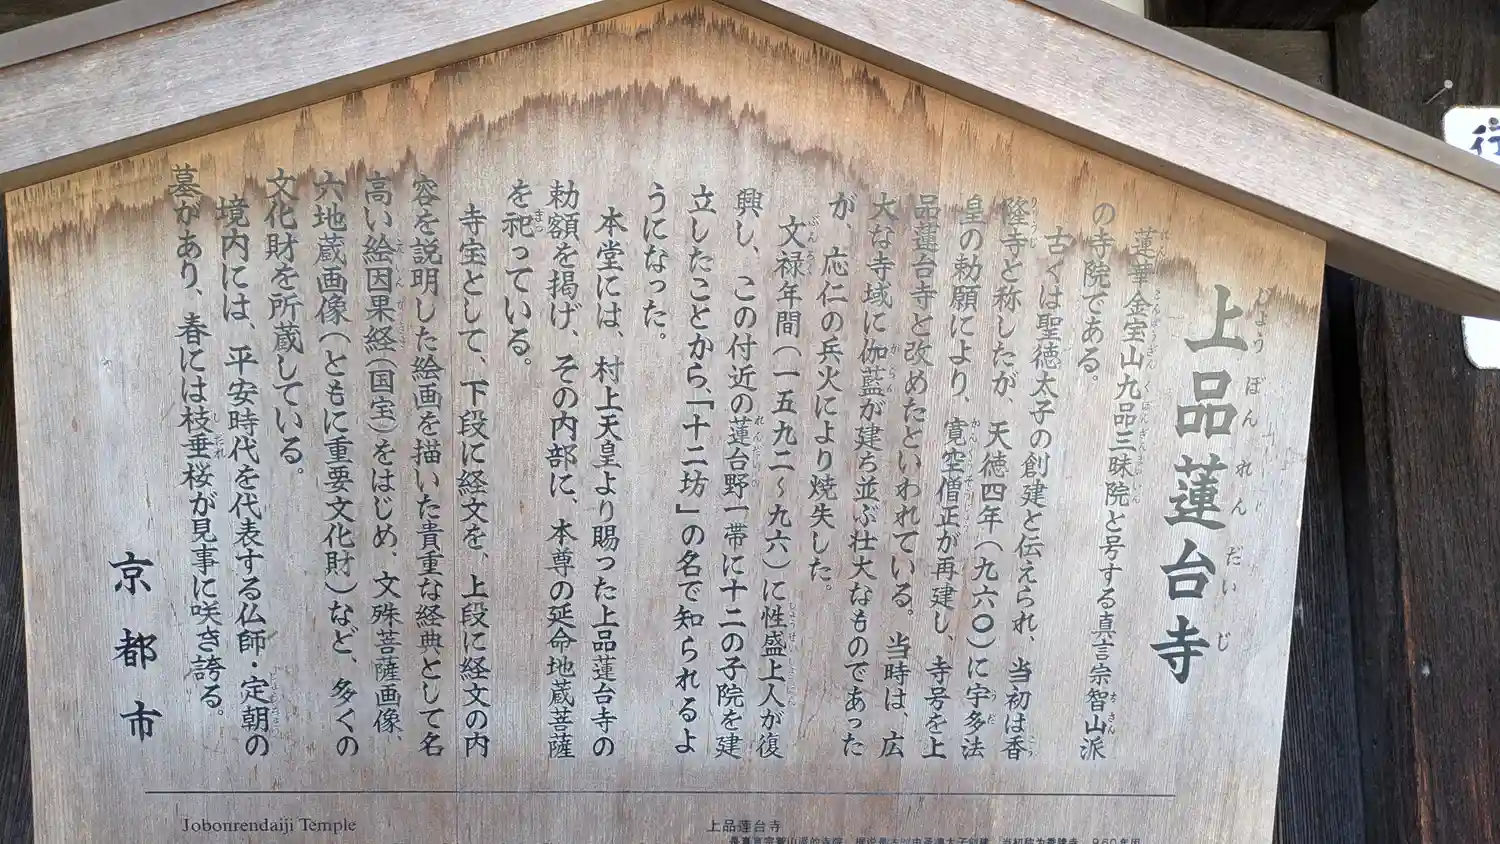 上品蓮台寺
蓮華金宝山九品三昧院と号する真言宗智山派
の寺院である。
古くは聖徳太子の創建と伝えられ、当初は香
隆寺と称したが、天徳四年(九六〇)に宇多法
皇の勅願により、寛空僧正が再建し、寺号を上
品蓮台寺と改めたといわれている。当時は、広
大な寺域に伽藍が建ち並ぶ壮大なものであった
が、応仁の兵火により焼失した。
文禄年間(一五九二〜九六)に性盛上人が復
興し、この付近の蓮台野一帯に十二の子院を建
立したことから、「十二坊」の名で知られるよ
うになった。
本堂には、村上天皇より賜った上品蓮台寺の
勅額を掲げ、その内部に、本尊の延命地蔵菩薩
を祀っている。
寺宝として、下段に経文を、上段に経文の内
容を説明した絵画を描いた貴重な経典として名
高い絵因果経(国宝)をはじめ、文殊菩薩画像、
六地蔵画像(ともに重要文化財)など、多くの
文化財を所蔵している。
境内には、平安時代を代表する仏師・定朝の
墓があり、春には枝垂桜が見事に咲き誇る。
京都市
Jobonrendaiji Temple
上品蓮台寺